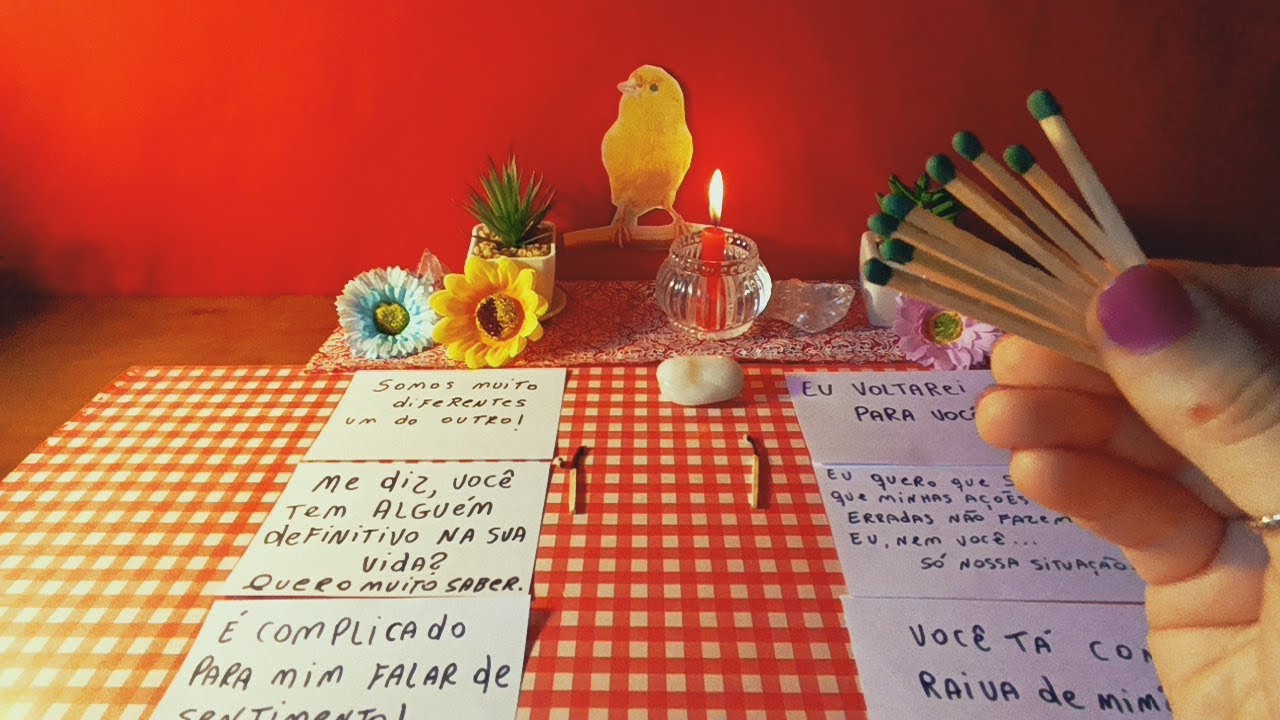 Somos muito
diferentes
um do outro!
Me diz, você
tem ALGUÉM
definitivo na sua
vida?
Quero muito saber.
É complicado
para mim falar de
sentimento!
Eu voltarei
para você
Eu quero que
que minhas ações
erradas não fazem
eu, nem você...
só nossa situação.
Você tá com
raiva de mim?